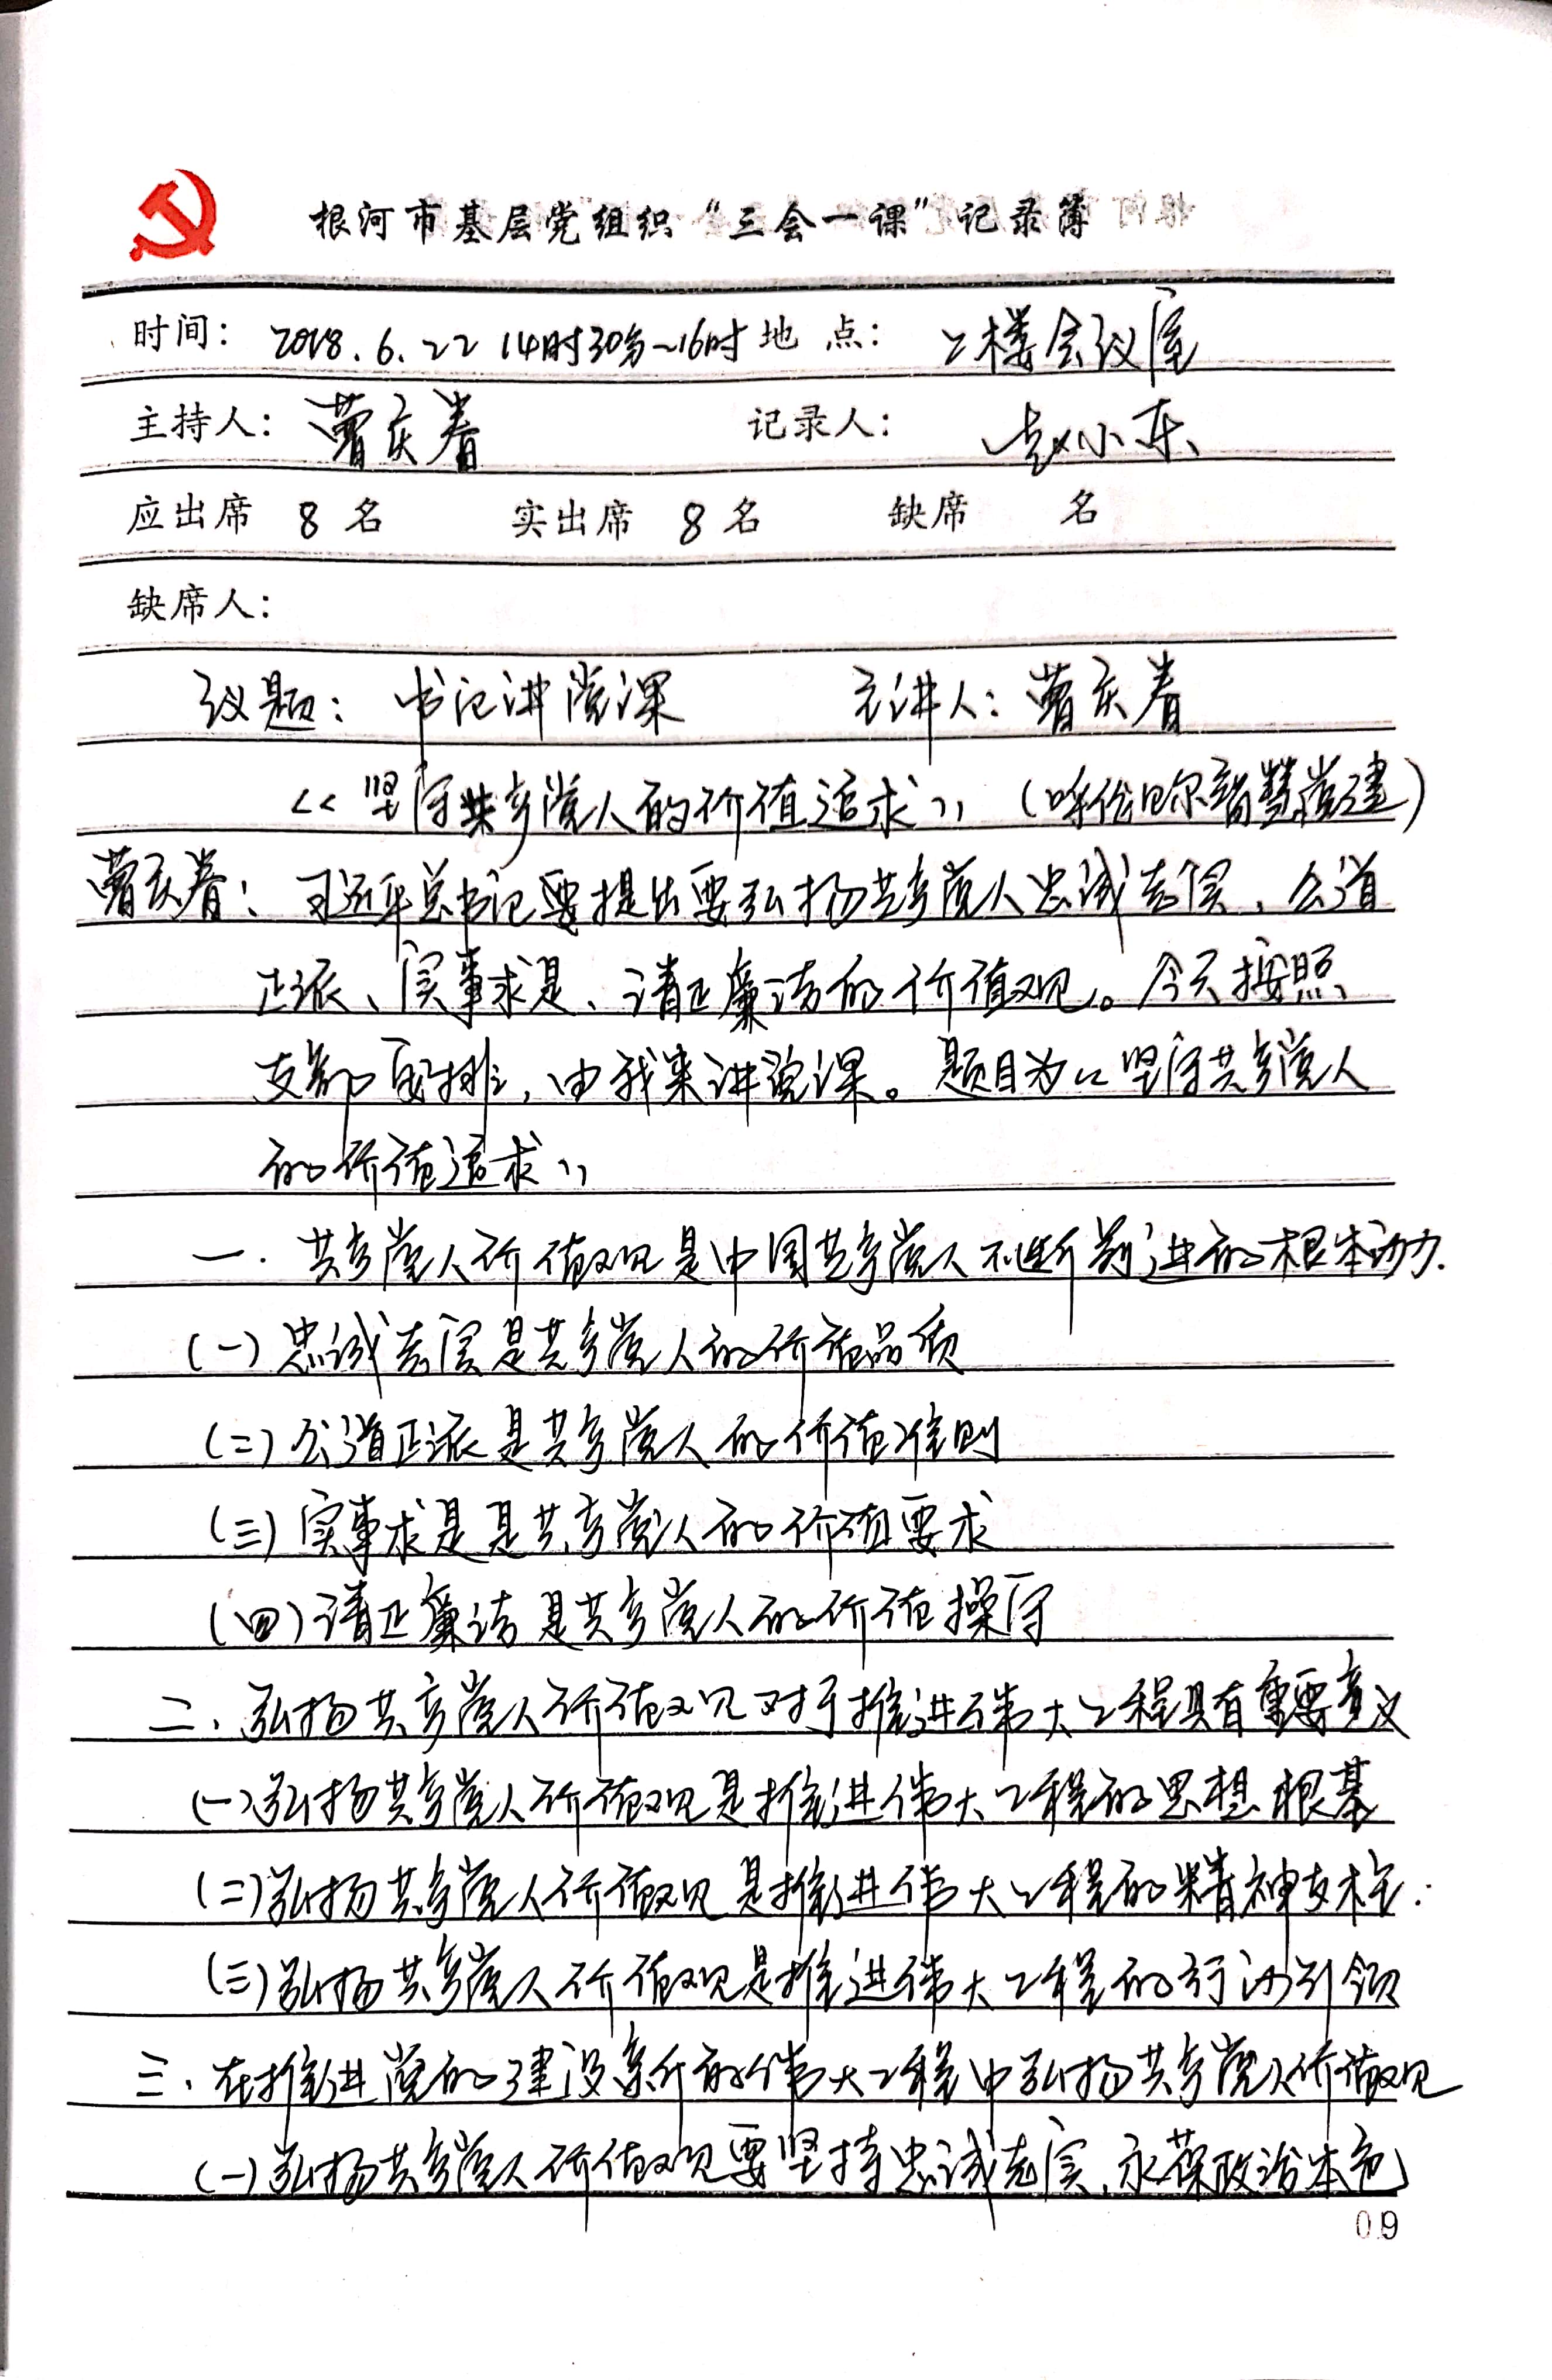 根河市基层党组织“三会一课”记录簿
时间： 2018.6.22 14时30分~16时 地 点： 二楼会议室
主持人： 曹庆春 记录人： 赵小东
应出席 8 名 实出席 8 名 缺席 名
缺席人：
议题： 书记讲党课 主讲人：曹庆春
《坚守共产党人的价值追求》（呼伦贝尔智慧党建）
曹庆春：习近平总书记要提出要弘扬共产党人忠诚老实、公道
正派、实事求是、清正廉洁的价值观。今天按照
支部安排，由我来讲党课。题目为《坚守共产党人
的价值追求》
一．共产党人价值观是中国共产党人不断前进的根本动力．
（一）忠诚老实是共产党人的价值品质
（二）公道正派是共产党人的价值准则
（三）实事求是是共产党人的价值要求
（四）清正廉洁是共产党人的价值操守
二、弘扬共产党人价值观对于推进伟大工程具有重要意义
（一）弘扬共产党人价值观是推进伟大工程的思想根基
（二）弘扬共产党人价值观是推进伟大工程的精神支柱．
（三）弘扬共产党人价值观是推进伟大工程的行动引领
三、在推进党的建设新的伟大工程中弘扬共产党人价值观
（一）弘扬共产党人价值观要坚持忠诚老实，永葆政治本色
09